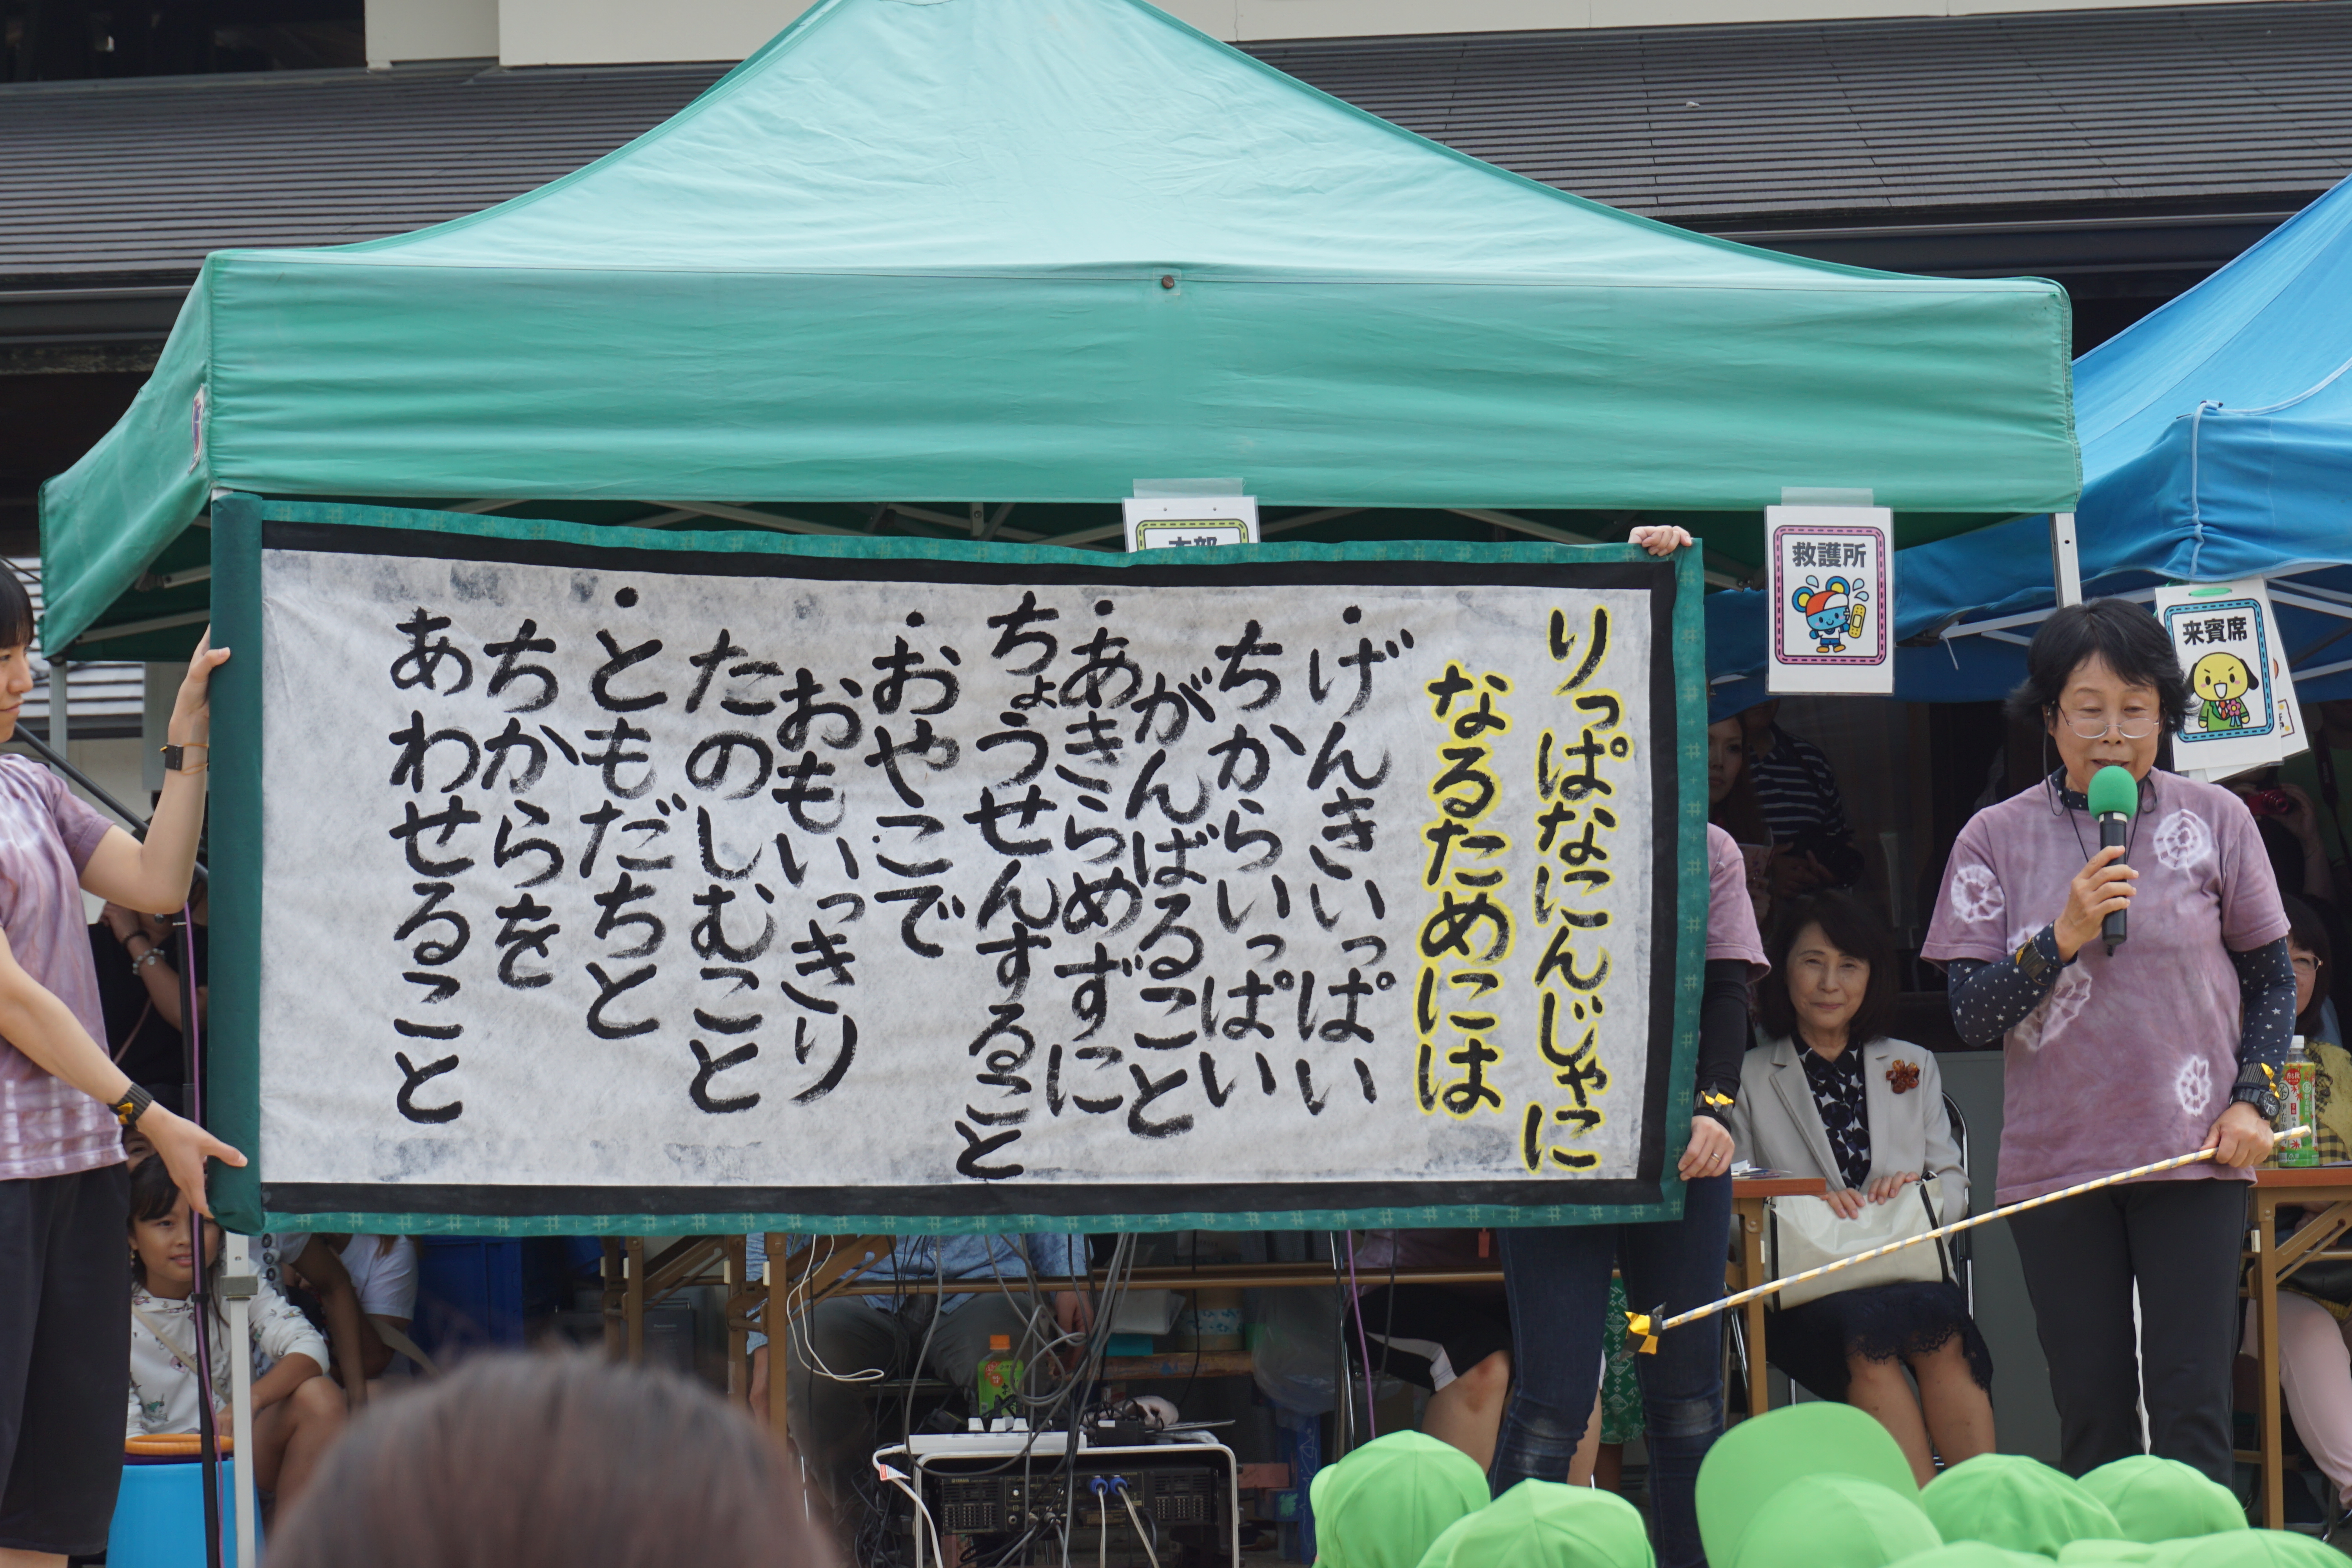 りっぱなにんじゃに
なるためには
・げんきいっぱい
ちからいっぱい
がんばること
・あきらめずに
ちょうせんすること
・おやこで
おもいっきり
たのしむこと
・ともだちと
ちからを
あわせること
救護所
来賓席